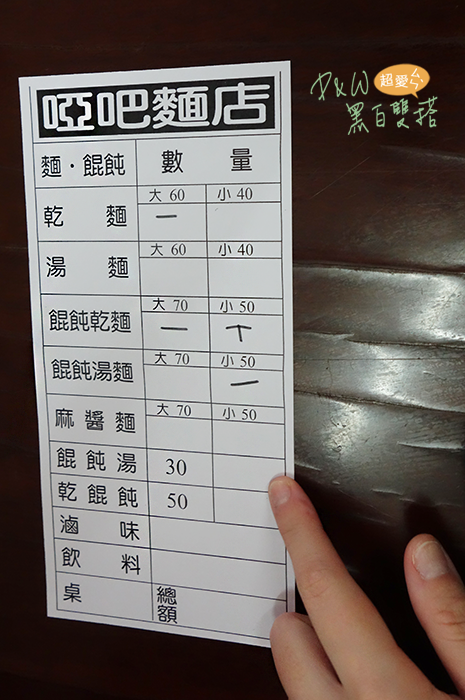 P&W 超愛ㄘ
黑白雙搭
啞吧麵店
麵·餛飩 數量
乾麵 大 60 小 40
一
湯麵 大 60 小 40
餛飩乾麵 大 70 小 50
一 丅
餛飩湯麵 大 70 小 50
一
麻醬麵 大 70 小 50
餛飩湯 30
乾餛飩 50
滷味
飲料
桌 總額